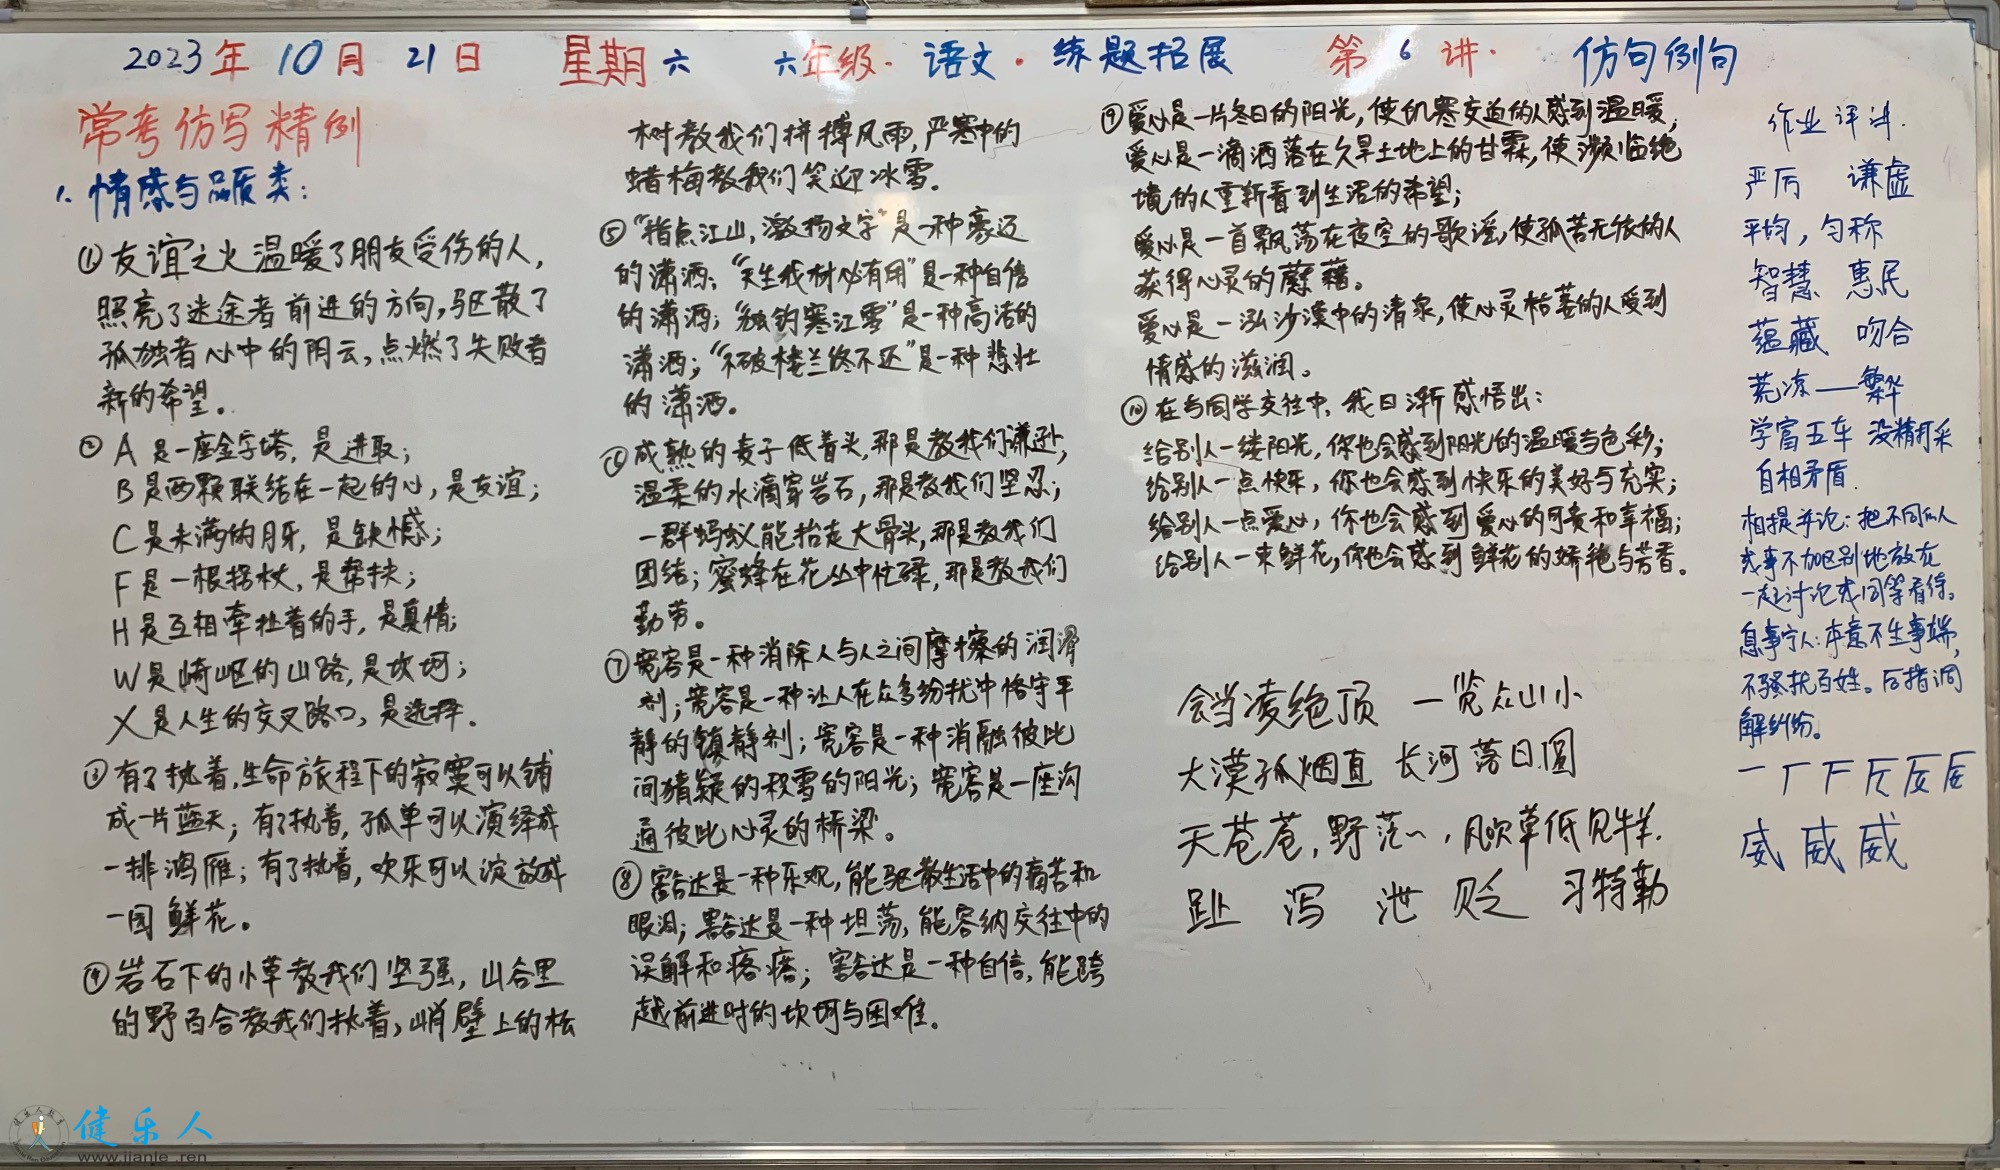 2023年 10月 21日 星期六 六年级·语文·练题拓展 第6讲· 仿句例句
常考仿写精例
1. 情感与品质类：
①友谊之火温暖了朋友受伤的人，
照亮了迷途者前进的方向，驱散了
孤独者心中的阴云，点燃了失败者
新的希望。
②A是一座金字塔，是进取；
B是两颗联结在一起的心，是友谊；
C是未满的月牙，是缺憾；
F是一根拐杖，是帮扶；
H是互相牵拉着的手，是真情；
W是崎岖的山路，是坎坷；
X是人生的交叉路口，是选择．
③有了执着，生命旅程下的寂寞可以铺
成一片蓝天；有了执着，孤单可以演绎成
一排鸿雁；有了执着，欢乐可以绽放成
一园鲜花。
④岩石下的小草教我们坚强，山谷里
的野百合教我们执着，峭壁上的松
树教我们拼搏风雨，严寒中的
蜡梅教我们笑迎冰雪．
⑤“指点江山，激扬文字”是一种豪迈
的潇洒；“天生我材必有用”是一种自信
的潇洒；“独钓寒江雪”是一种高洁的
潇洒；“不破楼兰终不还”是一种悲壮
的潇洒。
⑥成熟的麦子低着头，那是教我们谦逊；
温柔的水滴穿岩石，那是教我们坚忍；
一群蚂蚁能抬走大骨头，那是教我们
团结；蜜蜂在花丛中忙碌，那是教我们
勤劳。
⑦宽容是一种消除人与人之间摩擦的润滑
剂；宽容是一种让人在众多纷扰中恪守平
静的镇静剂；宽容是一种消融彼此
间猜疑的积雪的阳光；宽容是一座沟
通彼此心灵的桥梁。
⑧豁达是一种乐观，能驱散生活中的痛苦和
眼泪；豁达是一种坦荡，能容纳交往中的
误解和疙瘩；豁达是一种自信，能跨
越前进时的坎坷与困难．
⑨爱心是一片冬日的阳光，使饥寒交迫的人感到温暖；
爱心是一滴洒落在久旱土地上的甘霖，使濒临绝
境的人重新看到生活的希望；
爱心是一首飘荡在夜空的歌谣，使孤苦无依的人
获得心灵的慰藉。
爱心是一泓沙漠中的清泉，使心灵枯萎的人受到
情感的滋润。
⑩在与同学交往中，我日渐感悟出：
给别人一缕阳光，你也会感到阳光的温暖与色彩；
给别人一点快乐，你也会感到快乐的美好与充实；
给别人一点爱心，你也会感到爱心的可贵和幸福；
给别人一束鲜花，你也会感到鲜花的娇艳与芳香。
会当凌绝顶 一览众山小
大漠孤烟直 长河落日圆
天苍苍，野茫~，风吹草低见牛羊．
趾 泻 泄 贬 习特勒
作业评讲．
严厉 谦虚
平均，匀称
智慧 惠民
蕴藏 吻合
荒凉——繁华
学富五车 没精打采
自相矛盾．
相提并论：把不同的人
或事不加区别地放在
一起讨论或同等看待。
息事宁人：本意不生事端，
不骚扰百姓。后指调
解纠纷。
一 厂 F
威 威 威
健乐人
www.jianle.ren